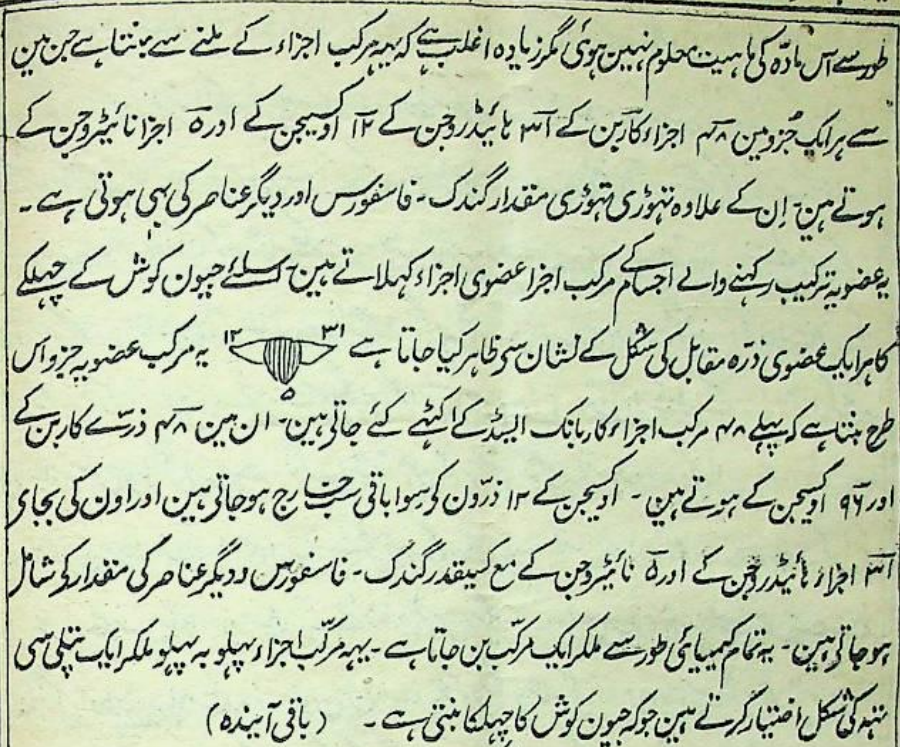 طور سے اس مادّہ کی ماہیت معلوم نہین ہوئی مگر زیادہ اغلب ہے کہ یہہ مرکب اجزاء کے ملنے سے بنتا ہے جن مین
سے ہر ایک جُزو مین ۴۸ اجزاء کاربن کے ۳۱ ہائیڈروجن کے ۱۲ اوکسیجن کے اور ۵ اجزا نائیٹروجن کے
ہوتے ہین۔ اِن کے علاوہ تہوڑی تہوڑی مقدار گندک۔ فاسفورس اور دیگر عناصر کی بہی ہوتی ہے۔
یہ عضویہ ترکیب رکہنے والے اجسام کے مرکب اجزا عضوی اجزاء کہلاتے ہین۔ اسلئے جیون کوش کے چہلکے
کا ہر ایک عضوی ذرّہ مقابل کی شکل کے نشان سی ظاہر کیا جاتا ہے ۳۱ ۱۲ ۵ یہ مرکب عضویہ جزو اس
طرح بنتا ہے کہ پہلے ۴۸ مرکب اجزاء کاربانک ایسڈ کے اکٹہے کئے جاتی ہین۔ ان مین ۴۸ ذرّے کاربن کے
اور ۹۶ اوکیجن کے ہوتے ہین۔ اوکیجن کے ۱۲ ذرّون کو سوا باقی سب خارج ہو جاتی ہین اور اون کی بجای
۳۱ اجزاء ہائیڈروجن کے اور ۵ نائیٹروجن کے مع کسیقدر گندک۔ فاسفورس و دیگر عناصر کی مقدار کو شامل
ہو جاتی ہین۔ یہ تمام کیمیائی طور سے ملکر ایک مرکّب بن جاتا ہے۔ یہہ مرکّب اجزاء پہلو بہ پہلو ملکر ایک پتلی سی
تہہ کی شکل اختیار کرتے ہین جو کہ جیون کوش کا چہلکا بنتی ہے۔ (باقی آیندہ)